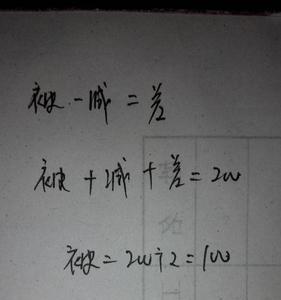 被-减=差
被+减+差=200
被=200÷2=100